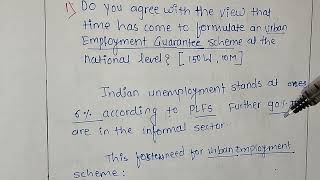 1) Do you agree with the view that
time has come to formulate an urban
Employment Guarantee scheme at the
national level? [150W, 10M]
Indian unemployment stands at
6% according to PLFS Further 90%
are in the informal sector.
This need for urban Employment
scheme: